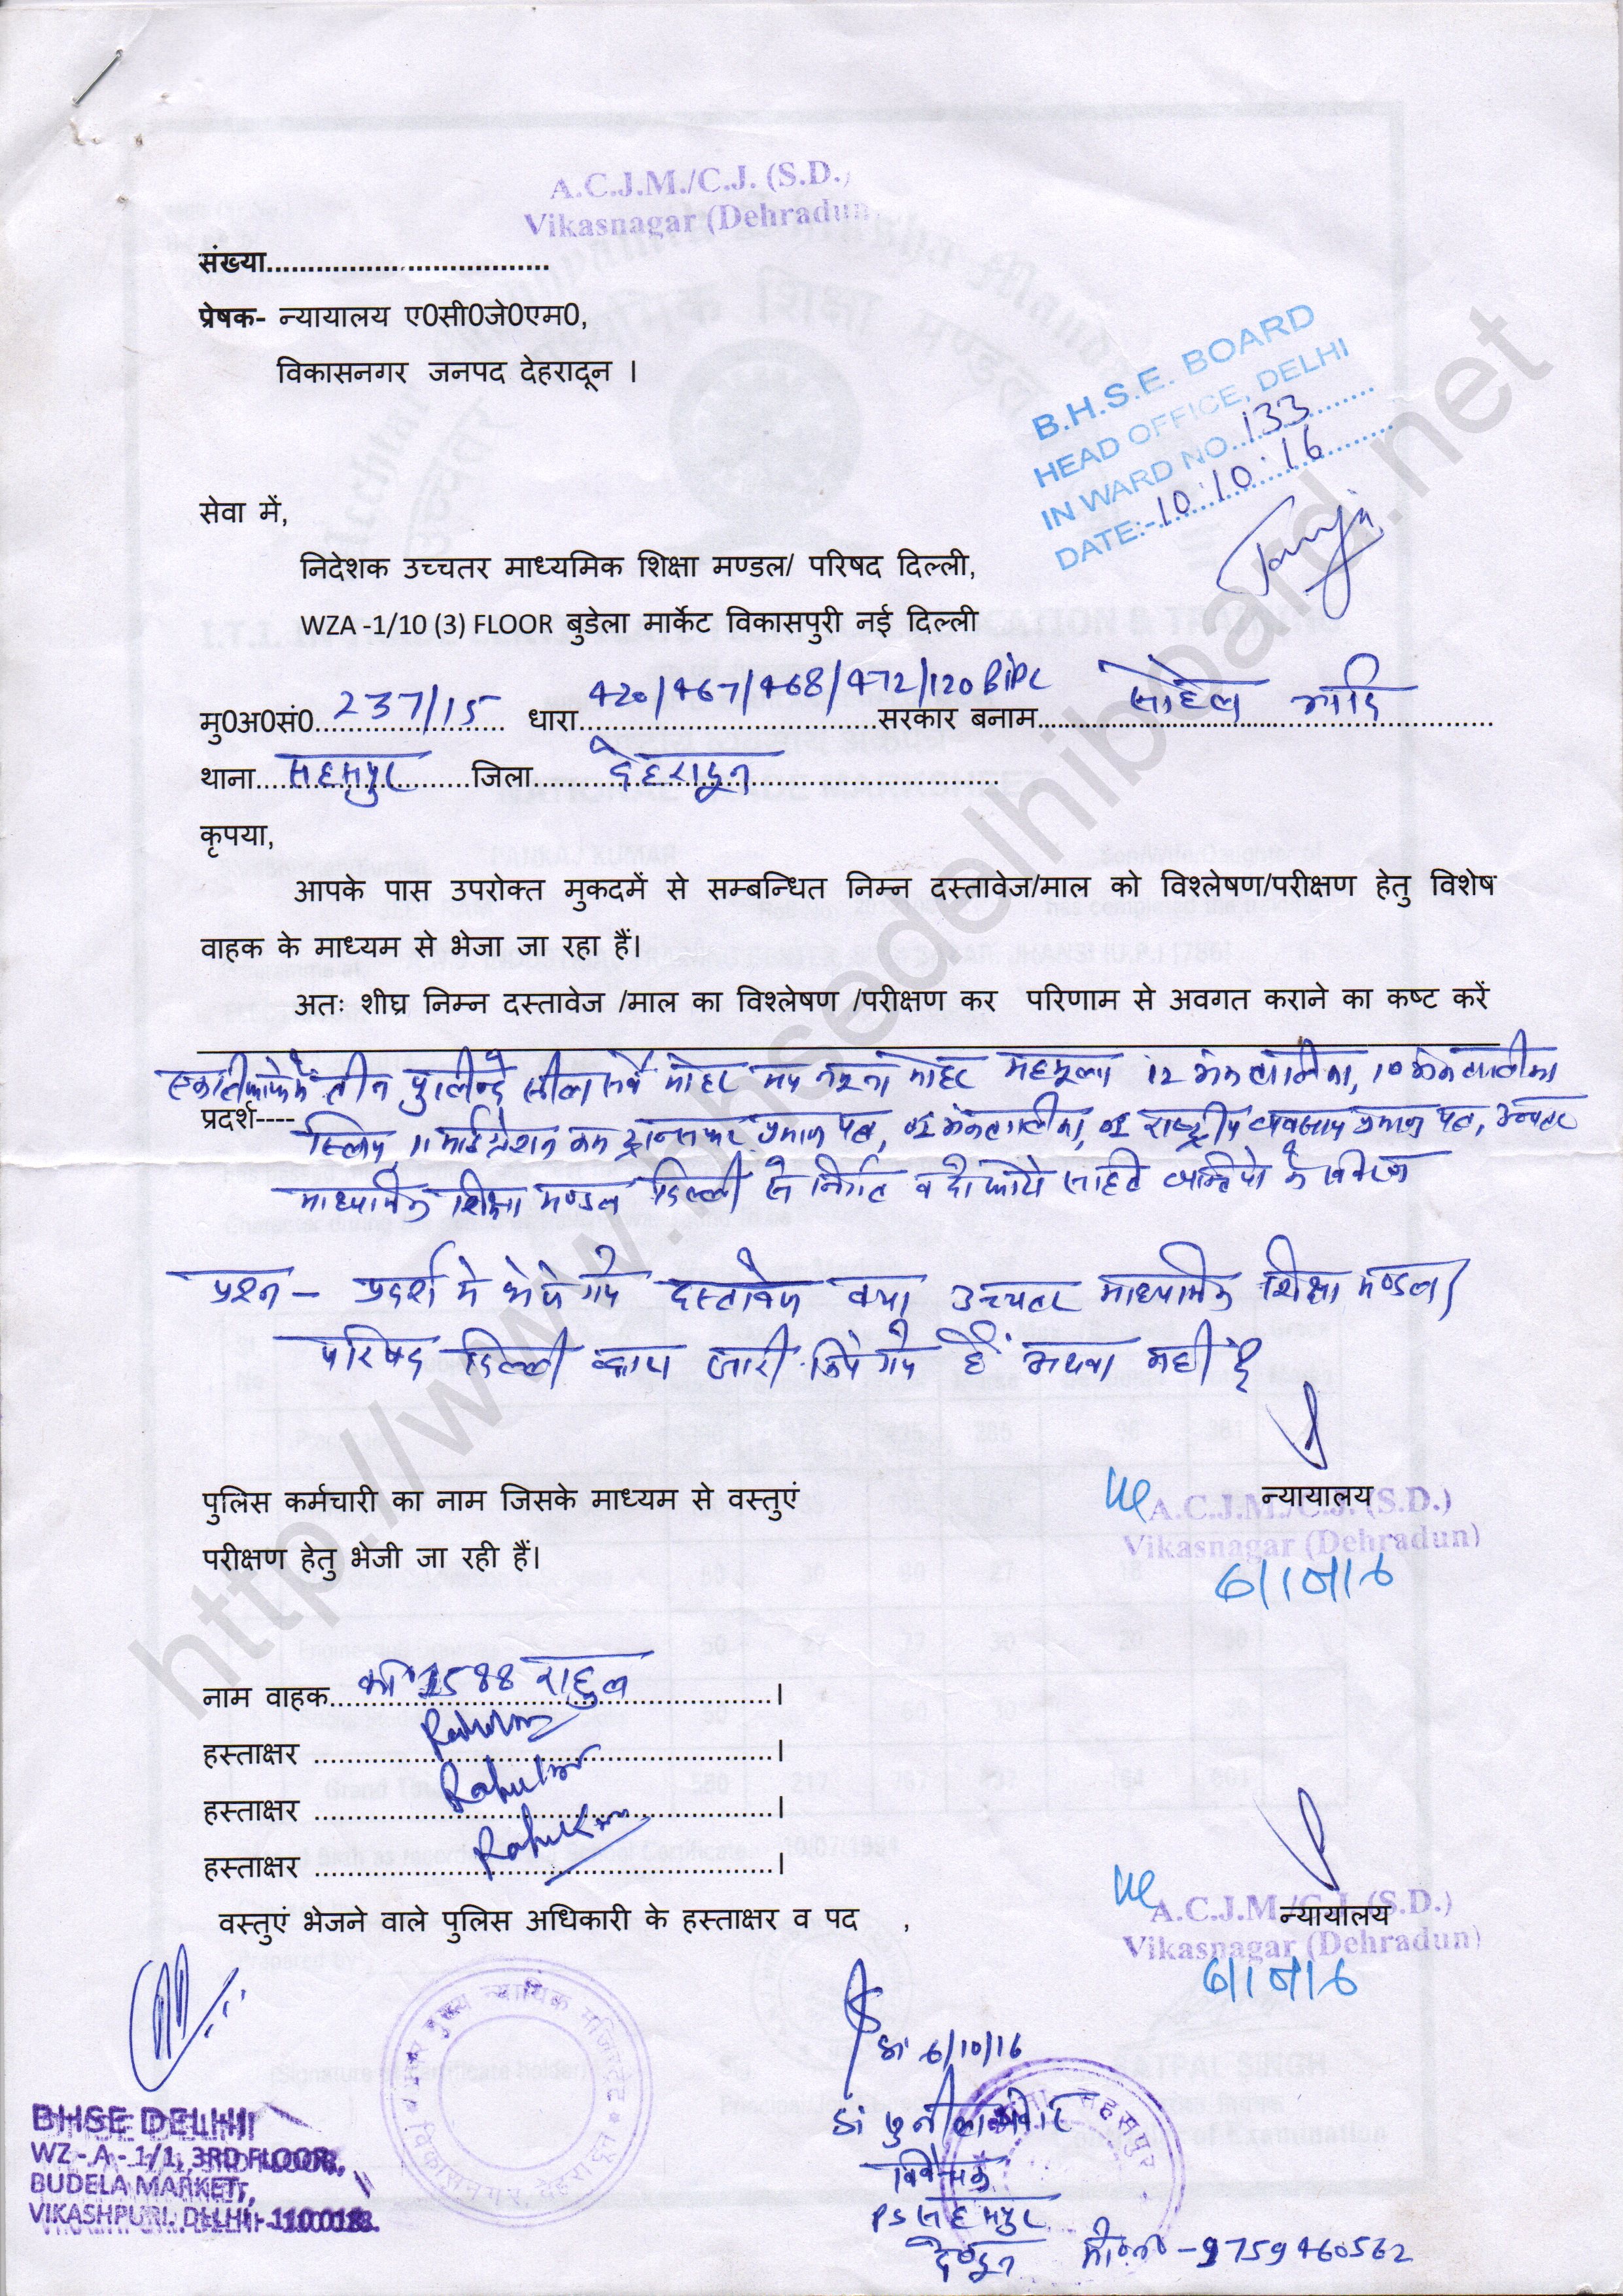 A.C.J.M./C.J. (S.D.)
Vikasnagar (Dehradun)
संख्या..................................
प्रेषक- न्यायालय ए0सी0जे0एम0,
विकासनगर जनपद देहरादून ।
B.H.S.E. BOARD
HEAD OFFICE, DELHI
IN WARD NO. 133
DATE:- 10:10:16
सेवा में,
निदेशक उच्चतर माध्यमिक शिक्षा मण्डल/ परिषद दिल्ली,
WZA -1/10 (3) FLOOR बुडेला मार्केट विकासपुरी नई दिल्ली
मु0अ0सं0 237/15 धारा 420/467/468/472/120B IPC सरकार बनाम
थाना सहसपुर जिला देहरादून
कृपया,
आपके पास उपरोक्त मुकदमें से सम्बन्धित निम्न दस्तावेज/माल को विश्लेषण/परीक्षण हेतु विशेष
वाहक के माध्यम से भेजा जा रहा हैं।
अतः शीघ्र निम्न दस्तावेज /माल का विश्लेषण /परीक्षण कर परिणाम से अवगत कराने का कष्ट करें
तीन पुलिन्दे सील सर्वे मोहर मय नमूना मोहर 12 अंकतालिका, 10 अंकतालिका
प्रदर्श----
11 माईग्रेशन कम ट्रान्सफर प्रमाण पत्र, 02 अंकतालिका, 02 राष्ट्रीय व्यवसाय प्रमाण पत्र, उच्चतर
माध्यमिक शिक्षा मण्डल दिल्ली से निर्गत व
प्रश्न - प्रदर्श मे भेजे गये दस्तावेज क्या उच्चतर माध्यमिक शिक्षा मण्डल/
परिषद दिल्ली द्वारा जारी किये गये हैं अथवा नही है
पुलिस कर्मचारी का नाम जिसके माध्यम से वस्तुएं
परीक्षण हेतु भेजी जा रही हैं।
न्यायालय
A.C.J.M./C.J. (S.D.)
Vikasnagar (Dehradun)
6/10/16
नाम वाहक का0 1588 राहुल
हस्ताक्षर ........................................................।
हस्ताक्षर ........................................................।
हस्ताक्षर ........................................................।
वस्तुएं भेजने वाले पुलिस अधिकारी के हस्ताक्षर व पद ,
न्यायालय
A.C.J.M./C.J. (S.D.)
Vikasnagar (Dehradun)
6/10/16
मुख्य न्यायिक मजिस्ट्रेट
विकासनगर, देहरादून
6/10/16
सहसपुर
विवेचक
PS सहसपुर
दे0दून मो0नं0 - 9759460562
BHSE DELHI
WZ - A - 1/1, 3RD FLOOR,
BUDELA MARKET,
VIKASHPURI, DELHI - 110018.
http://www.bhsedelhiboard.net